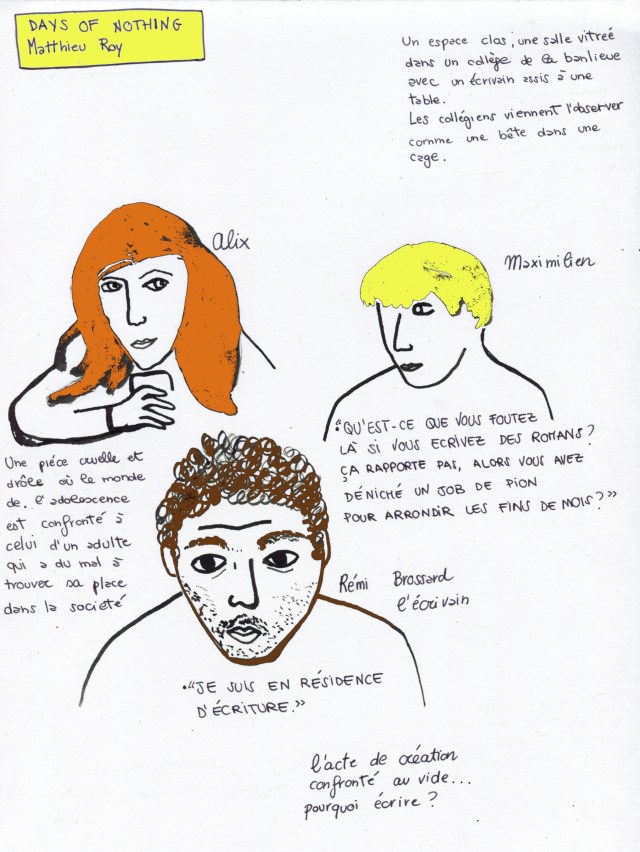 DAYS OF NOTHING
Matthieu Roy
Un espace clos, une salle vitreé
dans un collège de la banlieue
avec un écrivain assis à une
table.
Les collégiens viennent l'observer
comme une bête dans une
cage.
Alix
Maximilien
"QU'EST-CE QUE VOUS FOUTEZ
LÀ SI VOUS ECRIVEZ DES ROMANS?
ÇA RAPPORTE PAS, ALORS VOUS AVEZ
DÉNICHÉ UN JOB DE PION
POUR ARRONDIR LES FINS DE MOIS?"
Une piéce cruelle et
drôle où le monde
de l'adolescence
est confronté à
celui d'un adulte
qui a du mal à
trouver sa place
dans la société
Rémi Brossard
l'écrivain
•"JE SUIS EN RÉSIDENCE
D'ÉCRITURE."
l'acte de création
confronté au vide...
pourquoi écrire?